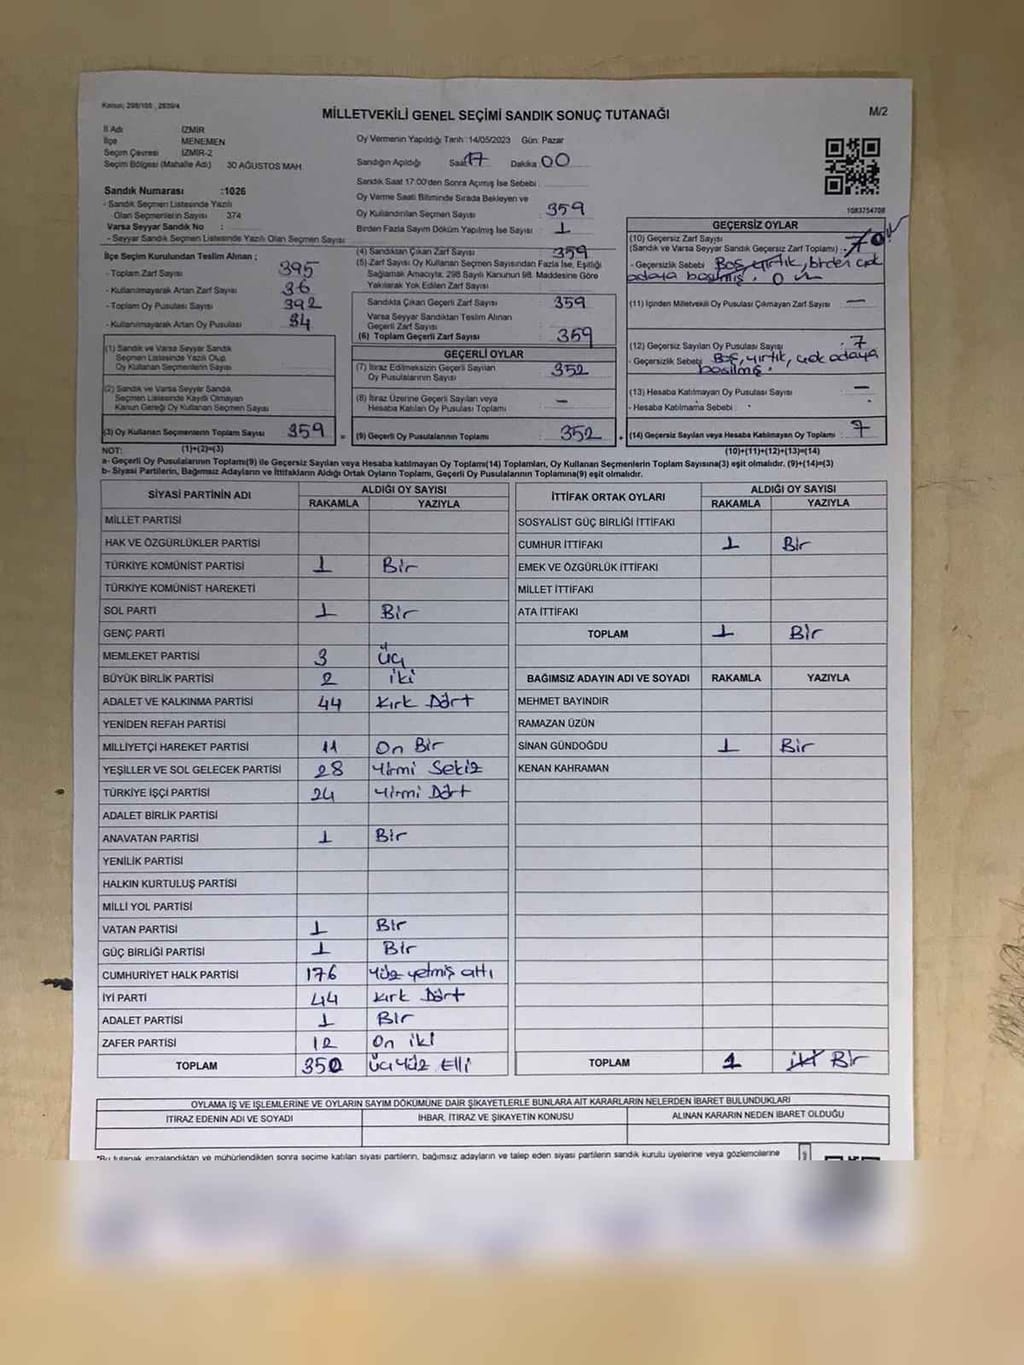 Kanun; 298/105 , 2839/4
MİLLETVEKİLİ GENEL SEÇİMİ SANDIK SONUÇ TUTANAĞI
M/2
İl Adı İZMİR
İlçe MENEMEN
Seçim Çevresi İZMİR-2
Seçim Bölgesi (Mahalle Adı) 30 AĞUSTOS MAH.
Sandık Numarası :1026
- Sandık Seçmen Listesinde Yazılı
Olan Seçmenlerin Sayısı 374
Varsa Seyyar Sandık No :
- Seyyar Sandık Seçmen Listesinde Yazılı Olan Seçmen Sayısı
Oy Vermenin Yapıldığı Tarih :14/05/2023 Gün: Pazar
Sandığın Açıldığı Saat 17 Dakika 00
Sandık Saat 17:00'den Sonra Açımış İse Sebebi :
Oy Verme Saati Bitiminde Sırada Bekleyen ve
Oy Kullandırılan Seçmen Sayısı 359
Birden Fazla Sayım Döküm Yapılmış İse Sayısı 1
1083754708
İlçe Seçim Kurulundan Teslim Alınan ;
- Toplam Zarf Sayısı 395
- Kullanılmayarak Artan Zarf Sayısı 36
- Toplam Oy Pusulası Sayısı 392
- Kullanılmayarak Artan Oy Pusulası 34
(1) Sandık ve Varsa Seyyar Sandık
Seçmen Listesinde Yazılı Olup
Oy Kullanan Seçmen Sayısı
(2) Sandık ve Varsa Seyyar Sandık
Seçmen Listesinde Kayıtlı Olmayan
Kanun Gereği Oy Kullanan Seçmen Sayısı
(3) Oy Kullanan Seçmenlerin Toplam Sayısı 359
(4) Sandıktan Çıkan Zarf Sayısı 359
(5) Zarf Sayısı Oy Kullanan Seçmen Sayısından Fazla İse, Eşitliği
Sağlamak Amacıyla, 298 Sayılı Kanunun 98. Maddesine Göre
Yakılarak Yok Edilen Zarf Sayısı
Sandıkta Çıkan Geçerli Zarf Sayısı 359
Varsa Seyyar Sandıktan Teslim Alınan
Geçerli Zarf Sayısı
(6) Toplam Geçerli Zarf Sayısı 359
GEÇERLİ OYLAR
(7) İtiraz Edilmeksizin Geçerli Sayılan
Oy Pusulalarının Sayısı 352
(8) İtiraz Üzerine Geçerli Sayılan veya
Hesaba Katılan Oy Pusulası Toplamı —
= (9) Geçerli Oy Pusulalarının Toplamı 352
GEÇERSİZ OYLAR
(10) Geçersiz Zarf Sayısı
(Sandık ve Varsa Seyyar Sandık Geçersiz Zarf Toplamı) :
- Geçersizlik Sebebi Boş, yırtık, birden çok
adaya basılmış. 0
(11) İçinden Milletvekili Oy Pusulası Çıkmayan Zarf Sayısı —
(12) Geçersiz Sayılan Oy Pusulası Sayısı : 7
- Geçersizlik Sebebi Boş, yırtık, çok adaya
basılmış.
(13) Hesaba Katılmayan Oy Pusulası Sayısı —
- Hesaba Katılmama Sebebi :
(14) Geçersiz Sayılan veya Hesaba Katılmayan Oy Toplamı : 7
NOT: (1)+(2)=(3) (10)+(11)+(12)+(13)=(14)
a- Geçerli Oy Pusulalarının Toplamı(9) ile Geçersiz Sayılan veya Hesaba katılmayan Oy Toplamı(14) Toplamları, Oy Kullanan Seçmenlerin Toplam Sayısına(3) eşit olmalıdır. (9)+(14)=(3)
b- Siyasi Partilerin, Bağımsız Adayların ve İttifakların Aldığı Ortak Oyların Toplamı, Geçerli Oy Pusulalarının Toplamına(9) eşit olmalıdır.
SİYASİ PARTİNİN ADI ALDIĞI OY SAYISI
RAKAMLA YAZIYLA
MİLLET PARTİSİ
HAK VE ÖZGÜRLÜKLER PARTİSİ
TÜRKİYE KOMÜNİST PARTİSİ 1 Bir
TÜRKİYE KOMÜNİST HAREKETİ
SOL PARTİ 1 Bir
GENÇ PARTİ
MEMLEKET PARTİSİ 3 üç
BÜYÜK BİRLİK PARTİSİ 2 iki
ADALET VE KALKINMA PARTİSİ 44 Kırk Dört
YENİDEN REFAH PARTİSİ
MİLLİYETÇİ HAREKET PARTİSİ 11 On Bir
YEŞİLLER VE SOL GELECEK PARTİSİ 28 Yirmi Sekiz
TÜRKİYE İŞÇİ PARTİSİ 24 Yirmi Dört
ADALET BİRLİK PARTİSİ
ANAVATAN PARTİSİ 1 Bir
YENİLİK PARTİSİ
HALKIN KURTULUŞ PARTİSİ
MİLLİ YOL PARTİSİ
VATAN PARTİSİ 1 Bir
GÜÇ BİRLİĞİ PARTİSİ 1 Bir
CUMHURİYET HALK PARTİSİ 176 Yüz yetmiş altı
İYİ PARTİ 44 Kırk Dört
ADALET PARTİSİ 1 Bir
ZAFER PARTİSİ 12 On iki
TOPLAM 350 Üç Yüz Elli
İTTİFAK ORTAK OYLARI ALDIĞI OY SAYISI
RAKAMLA YAZIYLA
SOSYALİST GÜÇ BİRLİĞİ İTTİFAKI
CUMHUR İTTİFAKI 1 Bir
EMEK VE ÖZGÜRLÜK İTTİFAKI
MİLLET İTTİFAKI
ATA İTTİFAKI
TOPLAM 1 Bir
BAĞIMSIZ ADAYIN ADI VE SOYADI RAKAMLA YAZIYLA
MEHMET BAYINDIR
RAMAZAN ÜZÜN
SİNAN GÜNDOĞDU 1 Bir
KENAN KAHRAMAN
TOPLAM 1 Bir
OYLAMA İŞ VE İŞLEMLERİNE VE OYLARIN SAYIM DÖKÜMÜNE DAİR ŞİKAYETLERLE BUNLARA AİT KARARLARIN NELERDEN İBARET BULUNDUKLARI
İTİRAZ EDENİN ADI VE SOYADI İHBAR, İTİRAZ VE ŞİKAYETİN KONUSU ALINAN KARARIN NEDEN İBARET OLDUĞU
*Bu tutanak imzalandıktan ve mühürlendikten sonra seçime katılan siyasi partilerin, bağımsız adayların ve talep eden siyasi partilerin sandık kurulu üyelerine veya gözlemcilerine